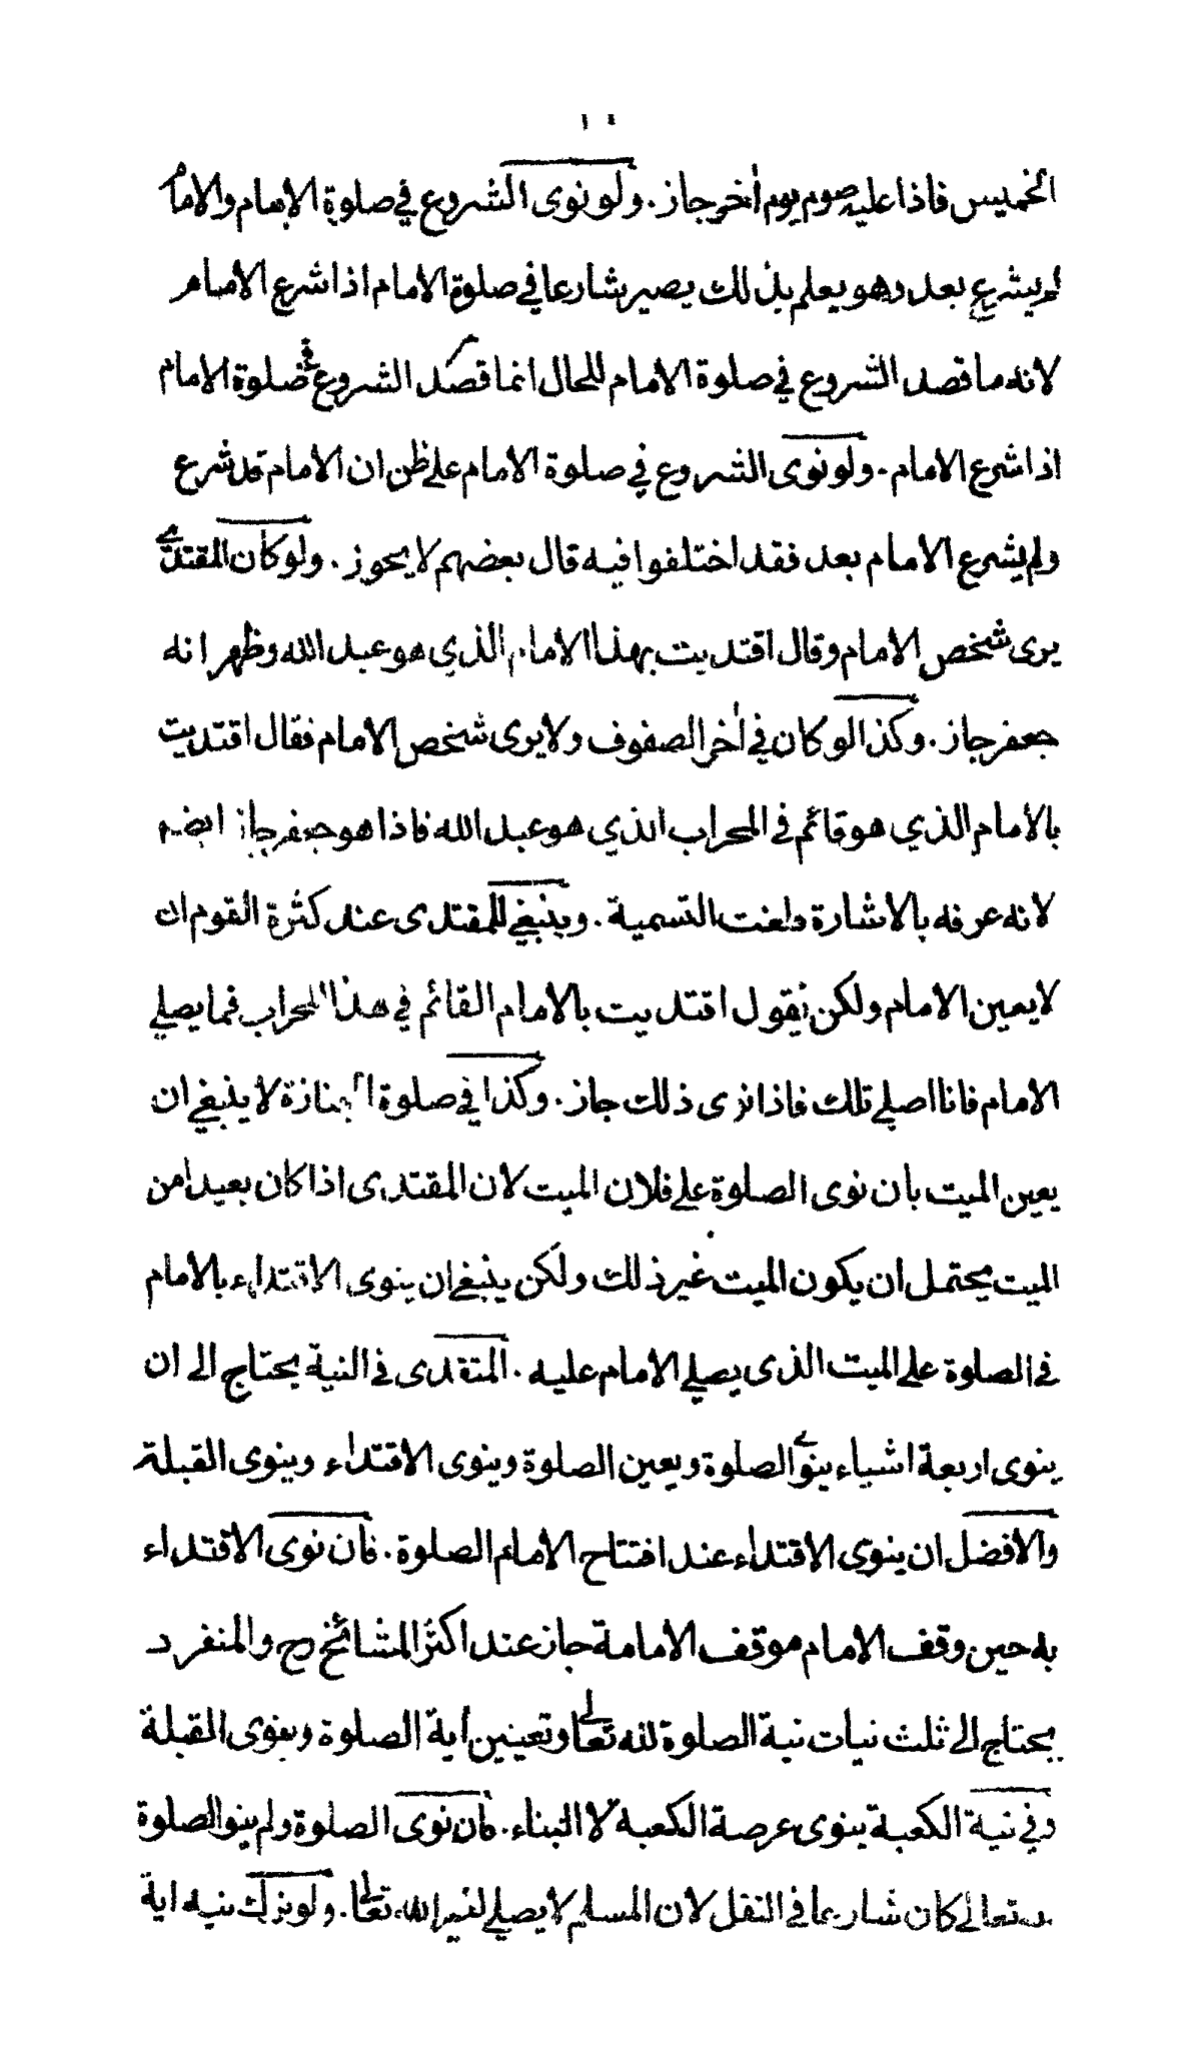 الخميس فاذا عليه صوم يوم أخر جاز . ولو نوى الشروع في صلوة الإمام والامام
لم يشرع بعد وهو يعلم بذلك يصير شارعا في صلوة الامام اذا شرع الامام
لانه ما قصد الشروع في صلوة الامام للحال انما قصد الشروع في صلوة الامام
اذا شرع الامام . ولو نوى الشروع في صلوة الامام على ظن ان الامام قد شرع
ولم يشرع الامام بعد فقد اختلفوا فيه قال بعضهم لا يجوز . ولو كان المقتدي
يرى شخص الامام وقال اقتديت بهذا الامام الذي هو عبد الله وظهر انه
جعفر جاز . وكذا لو كان في أخر الصفوف ولا يرى شخص الامام فقال اقتديت
بالامام الذي هو قائم في المحراب الذي هو عبد الله فاذا هو جعفر جاز ايضا
لانه عرفه بالاشارة ولغت التسمية . وينبغي للمقتدى عند كثرة القوم ان
لا يعين الامام ولكن يقول اقتديت بالامام القائم في هذا المحراب فما يصلي
الامام فانا اصلي تلك فاذا نوى ذلك جاز . وكذا في صلوة الجنازة لا ينبغي ان
يعين الميت بان نوى الصلوة على فلان الميت لان المقتدى اذا كان بعيدا من
الميت يحتمل ان يكون الميت غير ذلك ولكن ينبغي ان ينوى الاقتداء بالامام
في الصلوة على الميت الذى يصلي الامام عليه . المقتدى في النية يحتاج الى ان
ينوى اربعة اشياء ينوي الصلوة ويعين الصلوة وينوى الاقتداء وينوى القبلة
والافضل ان ينوى الاقتداء عند افتتاح الامام الصلوة . فان نوى الاقتداء
به حين وقف الامام موقف الامامة جاز عند اكثر المشائخ رح والمنفرد
يحتاج الى ثلث نيات نية الصلوة لله تعالى وتعيين أية الصلوة وينوى القبلة
وفي نية الكعبة ينوى عرصة الكعبة لا البناء . فان نوى الصلوة ولم ينو الصلوة
لله تعالى كان شارعا في النفل لان المسلم لا يصلي لغير الله تعالى . ولو ترك نية اية